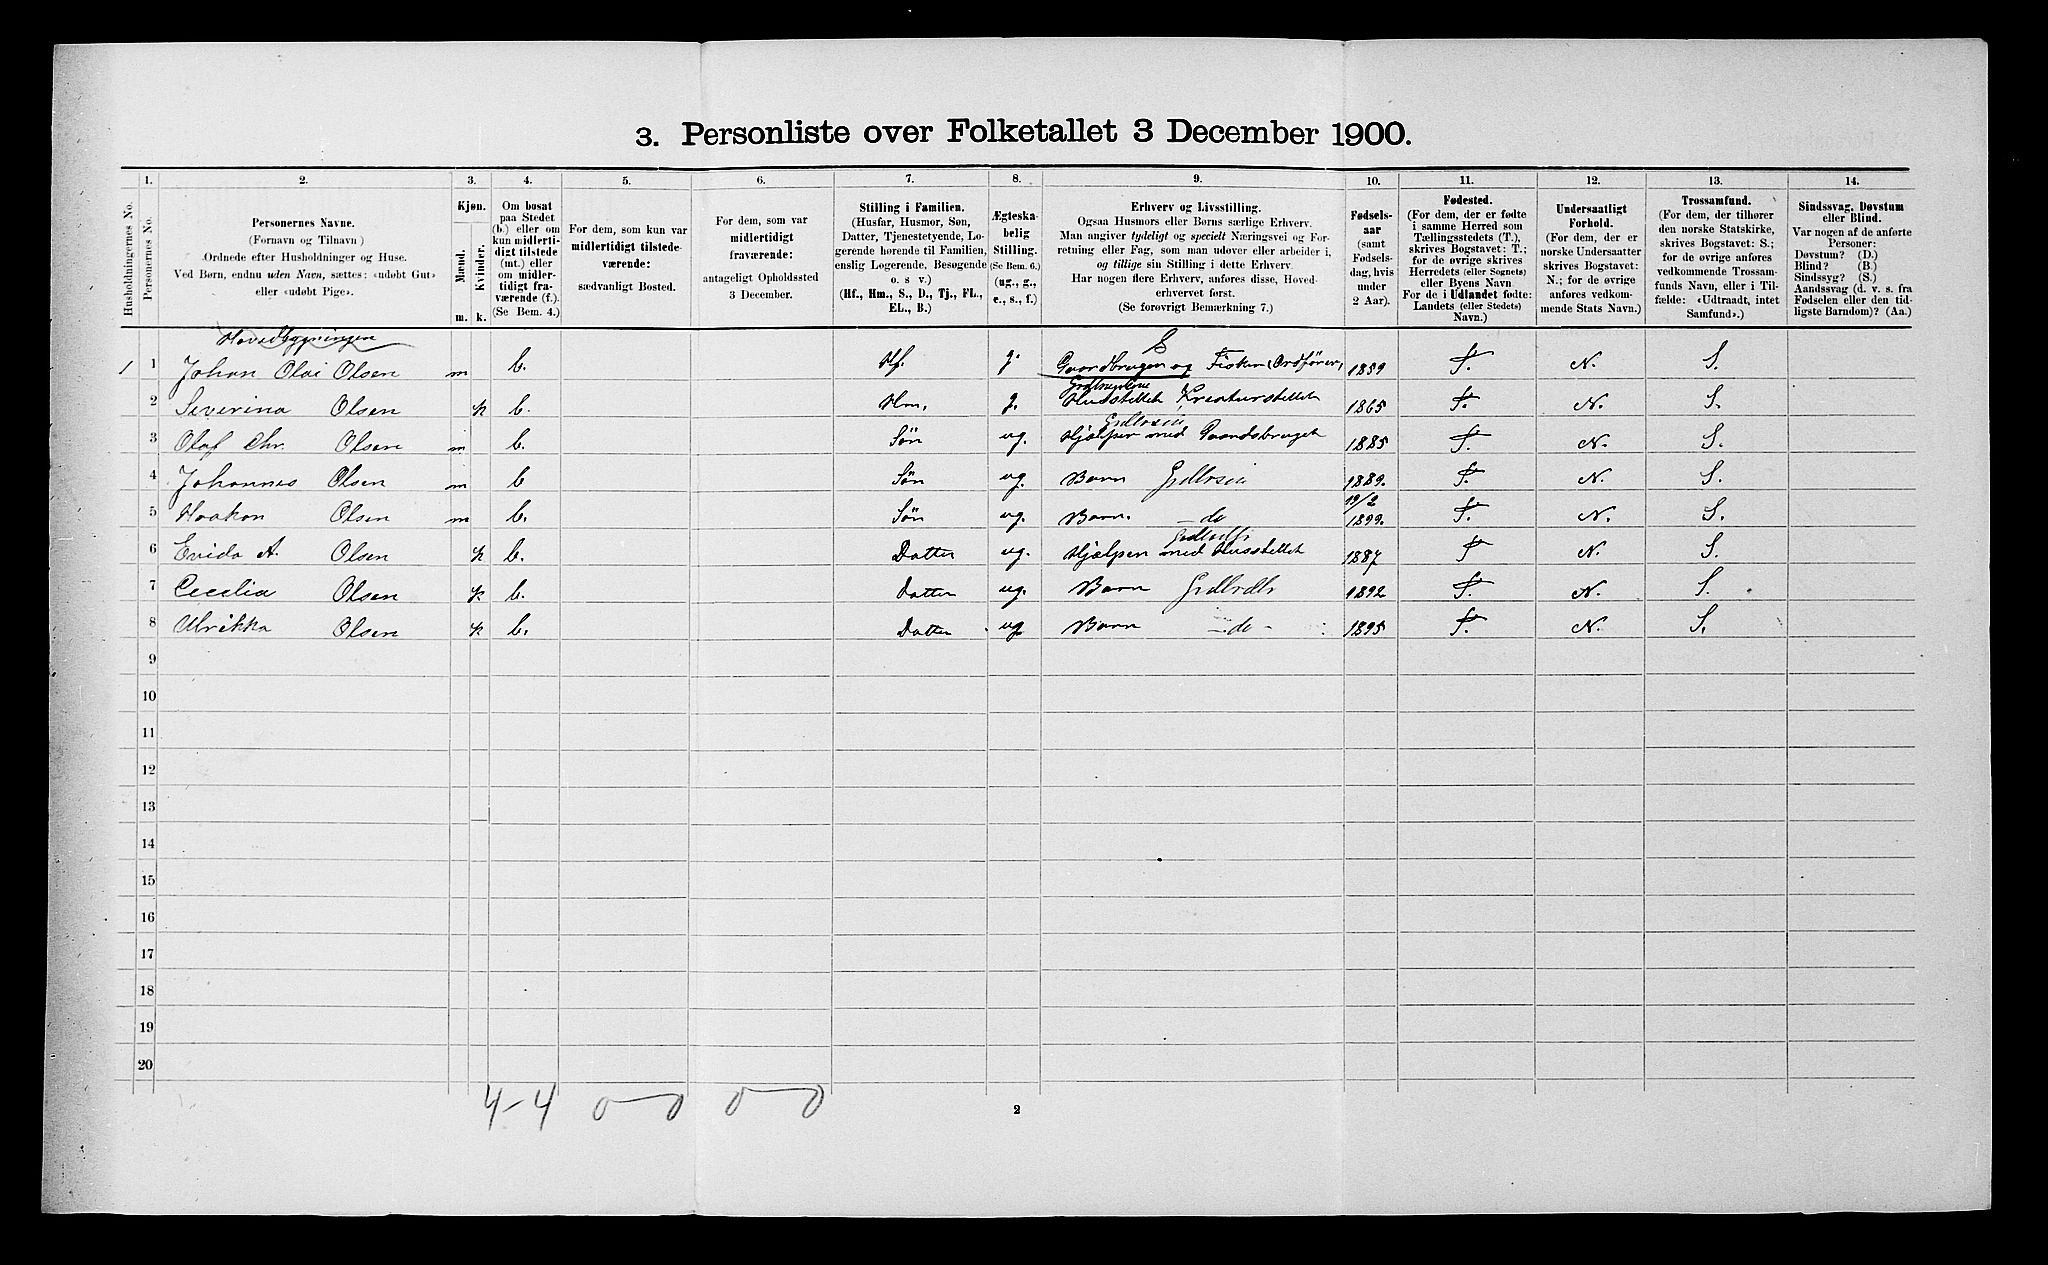 3. Personliste over Folketallet 3 December 1900.
1. 2. 3. 4. 5. 6. 7. 8. 9. 10. 11. 12. 13. 14.
Husholdningernes No.
Personernes No.
Personernes Navne.
(Fornavn og Tilnavn)
Ordnede efter Husholdninger og Huse.
Ved Børn, endnu uden Navn, sættes: «udøbt Gut»
eller «udøbt Pige».
Kjøn.
Mænd.
Kvinder.
m. k.
Om bosat
paa Stedet
(b.) eller om
kun midlerti-
digt tilstede
(mt.) eller
om midler-
tidigt fra-
værende (f.).
(Se Bem. 4.)
For dem, som kun var
midlertidigt tilstede-
værende:
sædvanligt Bosted.
For dem, som var
midlertidigt
fraværende:
antageligt Opholdssted
3 December.
Stilling i Familien.
(Husfar, Husmor, Søn,
Datter, Tjenestetyende, Lo-
gerende hørende til Familien,
enslig Logerende, Besøgende
o. s v.)
(Hf., Hm., S., D., Tj., FL.,
EL., B.)
Ægteska-
belig
Stilling.
(Se Bem. 6.)
(ug., g.,
e., s., f.)
Erhverv og Livsstilling.
Ogsaa Husmors eller Børns særlige Erhverv.
Man angiver tydeligt og specielt Næringsvei og For-
retning eller Fag, som man udøver eller arbeider i,
og tillige sin Stilling i dette Erhverv.
Har nogen flere Erhverv, anføres disse, Hoved-
erhvervet først.
(Se forøvrigt Bemærkning 7.)
Fødsels-
aar
(samt
Fødsels-
dag, hvis
under
2 Aar).
Fødested.
(For dem, der er fødte
i samme Herred som
Tællingsstedets (T.),
skrives Bogstavet: T.;
for de øvrige skrives
Herredets (eller Sognets)
eller Byens Navn
For de i Udlandet fødte:
Landets (eller Stedets)
Navn.)
Undersaatligt
Forhold.
(For dem, der er
norske Undersaatter
skrives Bogstavet:
N.; for de øvrige
anføres vedkom-
mende Stats Navn.)
Trossamfund.
(For dem, der tilhører
den norske Statskirke,
skrives Bogstavet: S.;
for de øvrige anføres
vedkommende Trossam-
funds Navn, eller i Til-
fælde: «Udtraadt, intet
Samfund».)
Sindssvag, Døvstum
eller Blind.
Var nogen af de anførte
Personer:
Døvstum? (D.)
Blind? (B.)
Sindssyg? (S.)
Aandssvag (d. v. s. fra
Fødselen eller den tid-
ligste Barndom)? (Aa.)
Hovedbygningen
1 1 Johan Olai Olsen m b. Hf. g. Gaardbruger og Fisker (Ordfører) 1859 T. N. S.
2 Severina Olsen k b. Hm. g. Husstellet Kreaturstellet 1865 T. N. S.
3 Olaf Chr. Olsen m b. Søn ug. Hjælper med Gaardsbruget 1885 T. N. S.
4 Johannes Olsen m b Søn ug. Barn 1889. T. N. S.
19/2
5 Haakon Olsen m b. Søn ug. Barn. - do 1899. T. N. S.
6 Evida A. Olsen k b. Datter ug. Hjælper med Husstellet 1887 T N. S.
7 Cecelia Olsen k. b. Datter ug. Barn 1892 T. N. S.
8 Ulrikka Olsen k b. Datter ug Barn - do - 1895 T. N. S.
9
10
11
12
13
14
15
16
17
18
19
20
4-4 0-0 0-0
2